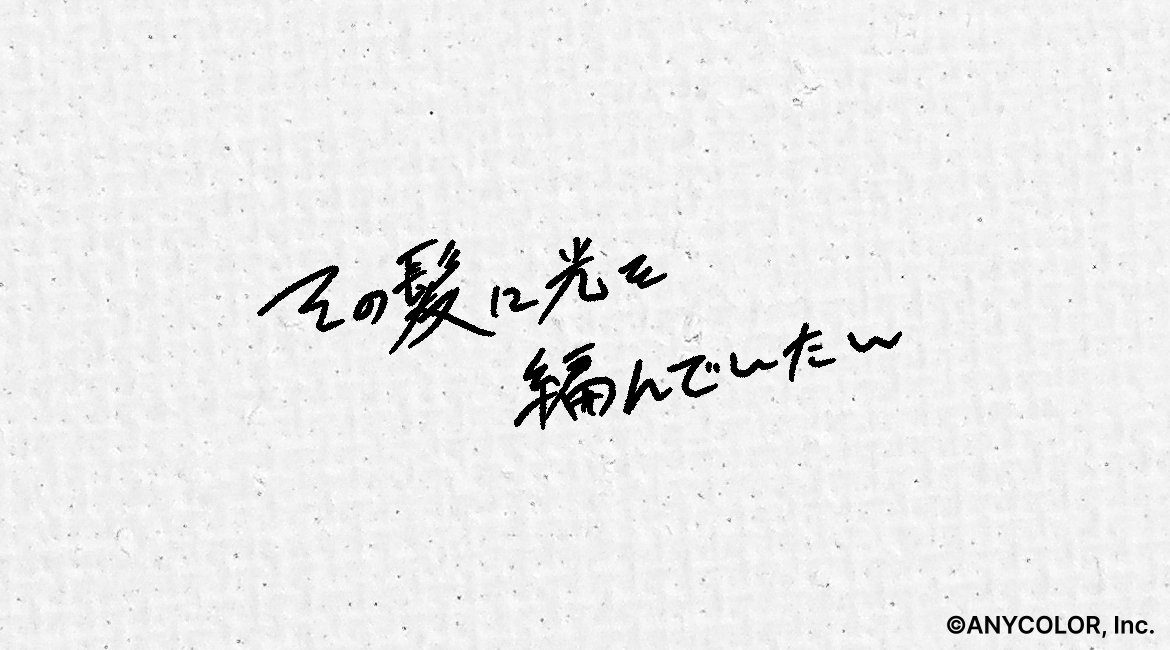 その髪に光を
編んでいたい
©ANYCOLOR, Inc.